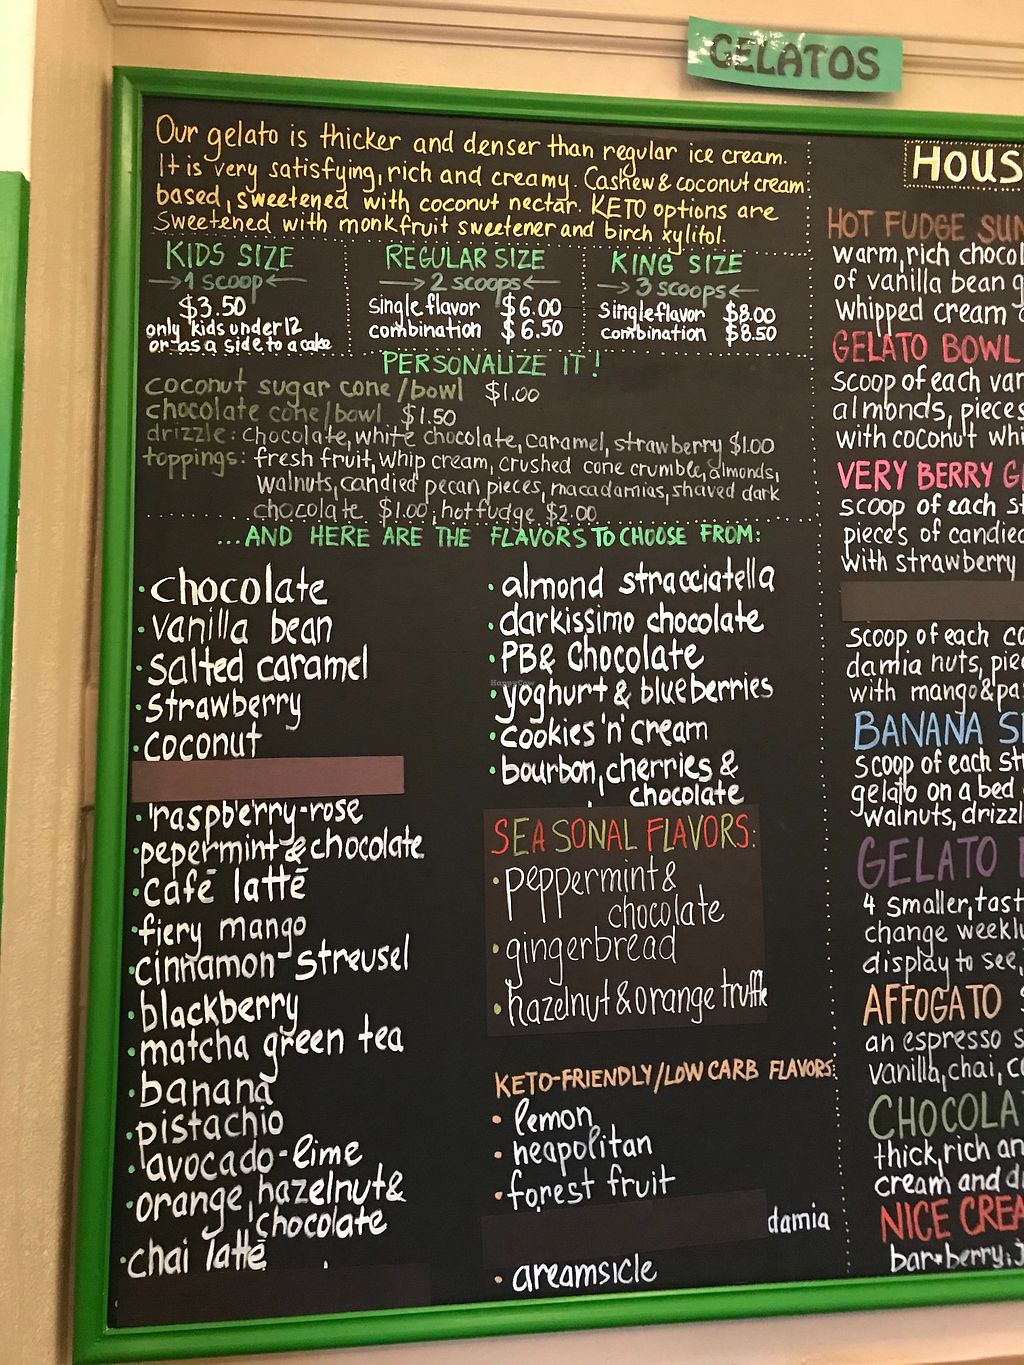 GELATOS
Our gelato is thicker and denser than regular ice cream.
It is very satisfying, rich and creamy. Cashew & coconut cream
based, sweetened with coconut nectar. KETO options are
Sweetened with monkfruit sweetener and birch xylitol.
KIDS SIZE
1 scoop
$3.50
only kids under 12
or as a side to a cake
REGULAR SIZE
2 scoops
single flavor $6.00
combination $6.50
KING SIZE
3 scoops
Single flavor $8.00
combination $8.50
PERSONALIZE IT!
coconut sugar cone/bowl $1.00
chocolate cone/bowl $1.50
drizzle: chocolate, white chocolate, caramel, strawberry $1.00
toppings: fresh fruit, whip cream, crushed cone crumble, almonds,
walnuts, candied pecan pieces, macadamias, shaved dark
chocolate $1.00; hot fudge $2.00
...AND HERE ARE THE FLAVORS TO CHOOSE FROM:
·chocolate
·vanilla bean
·salted caramel
·strawberry
·coconut
·raspberry-rose
·pepermint & chocolate
·café latté
·fiery mango
·cinnamon-streusel
·blackberry
·matcha green tea
·banana
·pistachio
·avocado-lime
·orange, hazelnut &
chocolate
·chai latté
·almond stracciatella
·darkissimo chocolate
·PB & Chocolate
·yoghurt & blueberries
·cookies 'n' cream
·bourbon, cherries &
chocolate
SEASONAL FLAVORS:
·peppermint &
chocolate
·gingerbread
·hazelnut & orange truffle
KETO-FRIENDLY/LOW CARB FLAVORS:
·lemon
·neapolitan
·forest fruit
damia
·creamsicle
HOUS
HOT FUDGE SUN
warm, rich chocol
of vanilla bean g
whipped cream
GELATO BOWL
Scoop of each var
almonds, pieces
with coconut whi
VERY BERRY G
scoop of each st
pieces of candied
with strawberry
scoop of each co
damia nuts, piec
with mango & pa
BANANA S
scoop of each st
gelato on a bed
walnuts, drizzl
GELATO
4 smaller, tast
change weekly
display to see,
AFFOGATO
an espresso s
vanilla, chai, co
CHOCOLA
thick, rich an
cream and d
NICE CREA
bar*berry, J
HappyCow